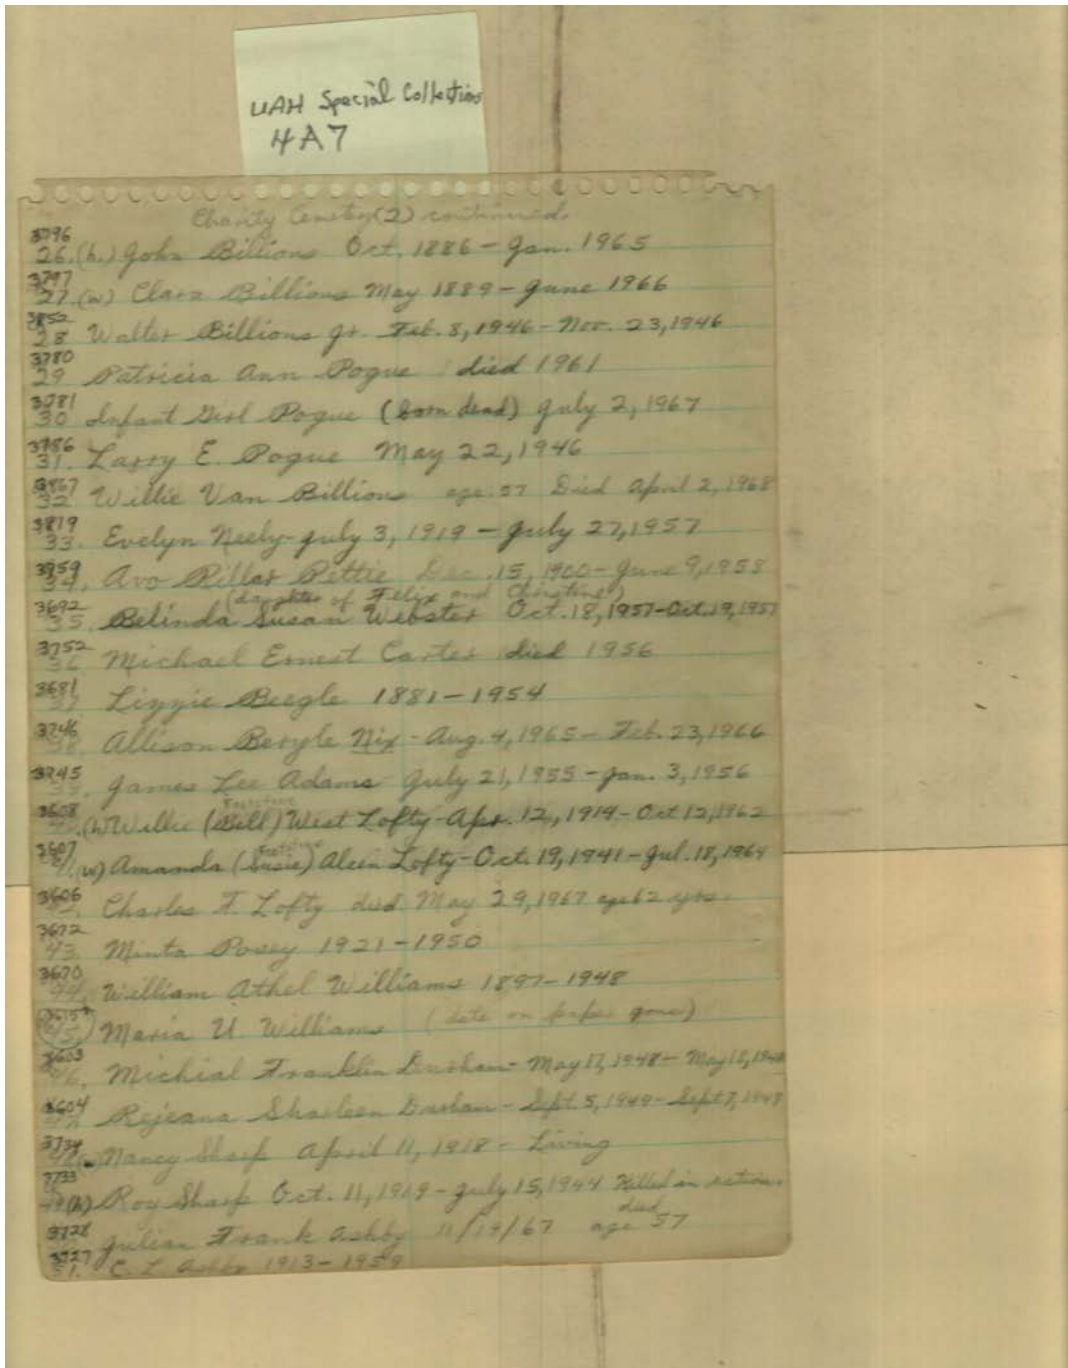 UAH Special Collections
4A7
Charity Cemetery (2) continued
3796
26. (h.) John Billions Oct. 1886 - Jan. 1965
3797
27. (w) Clara Billions May 1889 - June 1966
3852
28 Walter Billions Jr Feb. 8, 1946 - Nov. 23, 1946
3780
29 Patricia Ann Pogue died 1961
3781
30 Infant Girl Pogue (born dead) July 2, 1967
3786
31. Larry E. Pogue May 22, 1946
3867
32. Willie Van Billions age 57 Died April 2, 1968
3819
33. Evelyn Neely - July 3, 1919 - July 27, 1957
3959
34. Avo Pettie Dec. 15, 1900 - June 9, 1958
(daughter of Felix and Christine)
3692
35. Belinda Susan Webster Oct. 18, 1957 - Oct. 19, 1957
3752
36 Michael Ernest Carter died 1956
3681
37 Lizzie Beegle 1881 - 1954
3746
38. Allison Beryle Nix - Aug. 4, 1965 - Feb. 23, 1966
3745
39. James Lee Adams July 21, 1955 - Jan. 3, 1956
3608
40. (h) Willie (Bill) West Lofty - Apr. 12, 1914 - Oct 12, 1962
3607
41. (w) Amanda (Susie) Aleen Lofty - Oct. 19, 1941 - Jul. 18, 1964
3606
42. Charles F. Lofty died May 29, 1967 age 62 yrs.
3672
43. Minta Posey 1921 - 1950
3670
44. William Athel Williams 1897 - 1948
45. Maria U. Williams (date on paper gone)
3603
46. Michial Franklin Durham - May 17, 1948 - May 18, 1948
3604
47. Rejeana Sharleen Durham - Sept. 5, 1949 - Sept 7,
3734
48 (w) Nancy Sharp April 11, 1918 - Living
3733
49 (h) Roy Sharp Oct. 11, 1919 - July 15, 1944 Killed in action.
died
3728
Julian Frank Ashby 11/19/67 age 57
3727
51. C. L. Ashby 1913 - 1959